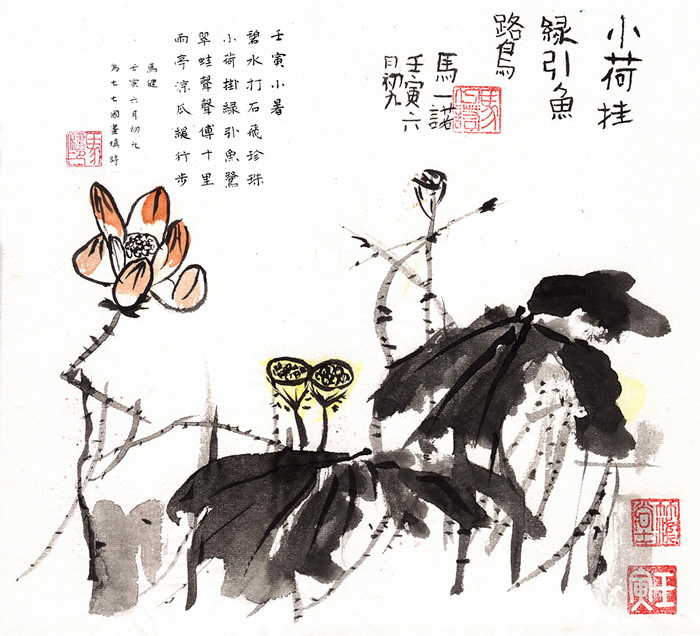 小荷挂
緑引魚
路鳥
馬一諾
壬寅六
月初九
壬寅小暑
碧水打石飛珍珠
小荷掛緑引魚鷺
翠蛙聲聲傳十里
雨亭涼瓜緩行步
馬健
壬寅六月初九
為七七國畫填詩